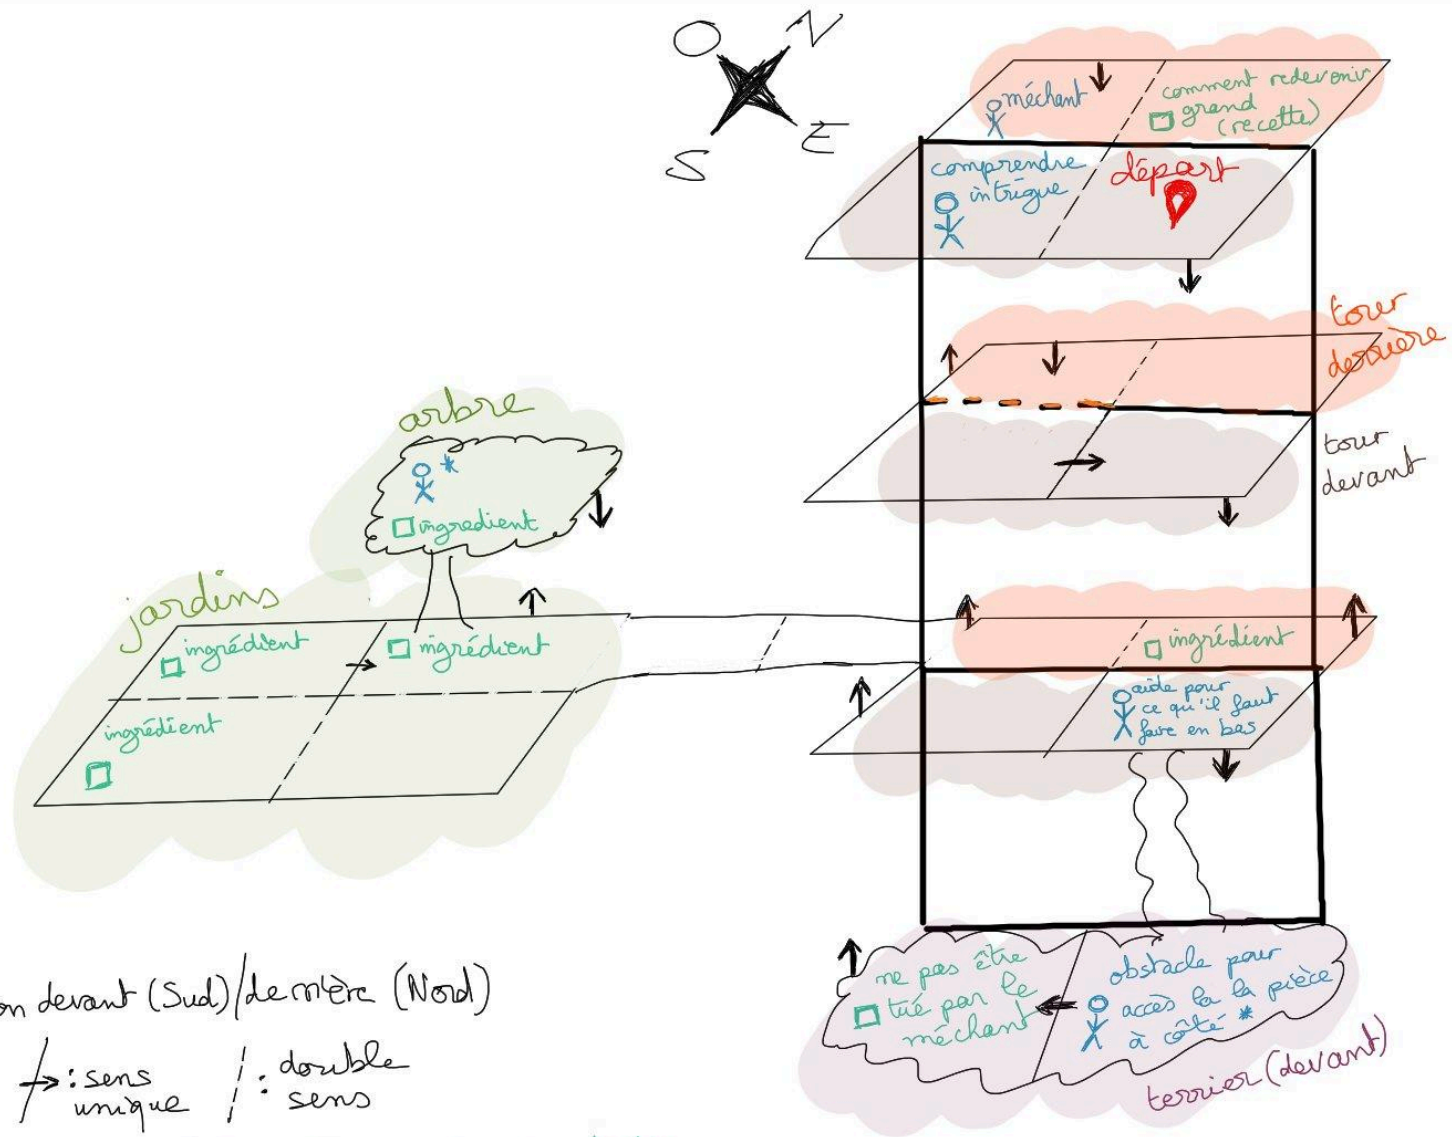 O
N
S
E
méchant
comment redevenir
grand
(recette)
comprendre
intrigue
départ
tour
derrière
tour
devant
arbre
*
ingrédient
jardins
ingrédient
ingrédient
ingrédient
ingrédient
aide pour
ce qu'il faut
faire en bas
ne pas être
tué par le
méchant
obstacle pour
accès la la pièce
à côté *
terrier (devant)
on devant (Sud)/derrière (Nord)
: sens
unique
: double
sens